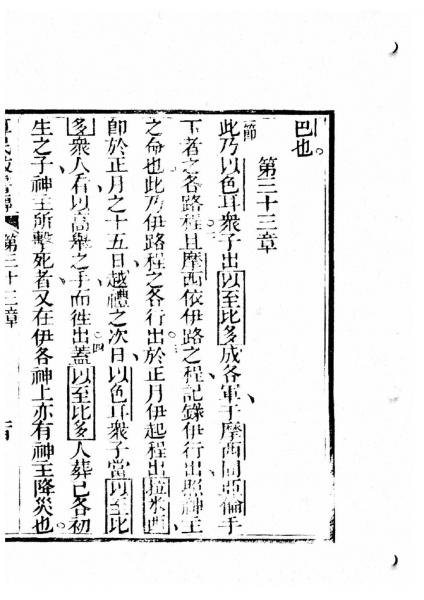 巴也。
第三十三章
節
此乃以色耳衆子出以至比多成各軍于摩西同亞倫手
下者之各路程且摩西依伊路之程記錄伊行出照神主
之命也此乃伊路程之各行出於正月伊起程出拉米西
卽於正月之十五日越禮之次日以色耳衆子當以至比
多衆人看以高舉之手而徃出蓋以至比多人葬已各初
生之子神主所擊死者又在伊各神上亦有神主降災也
第三十三章